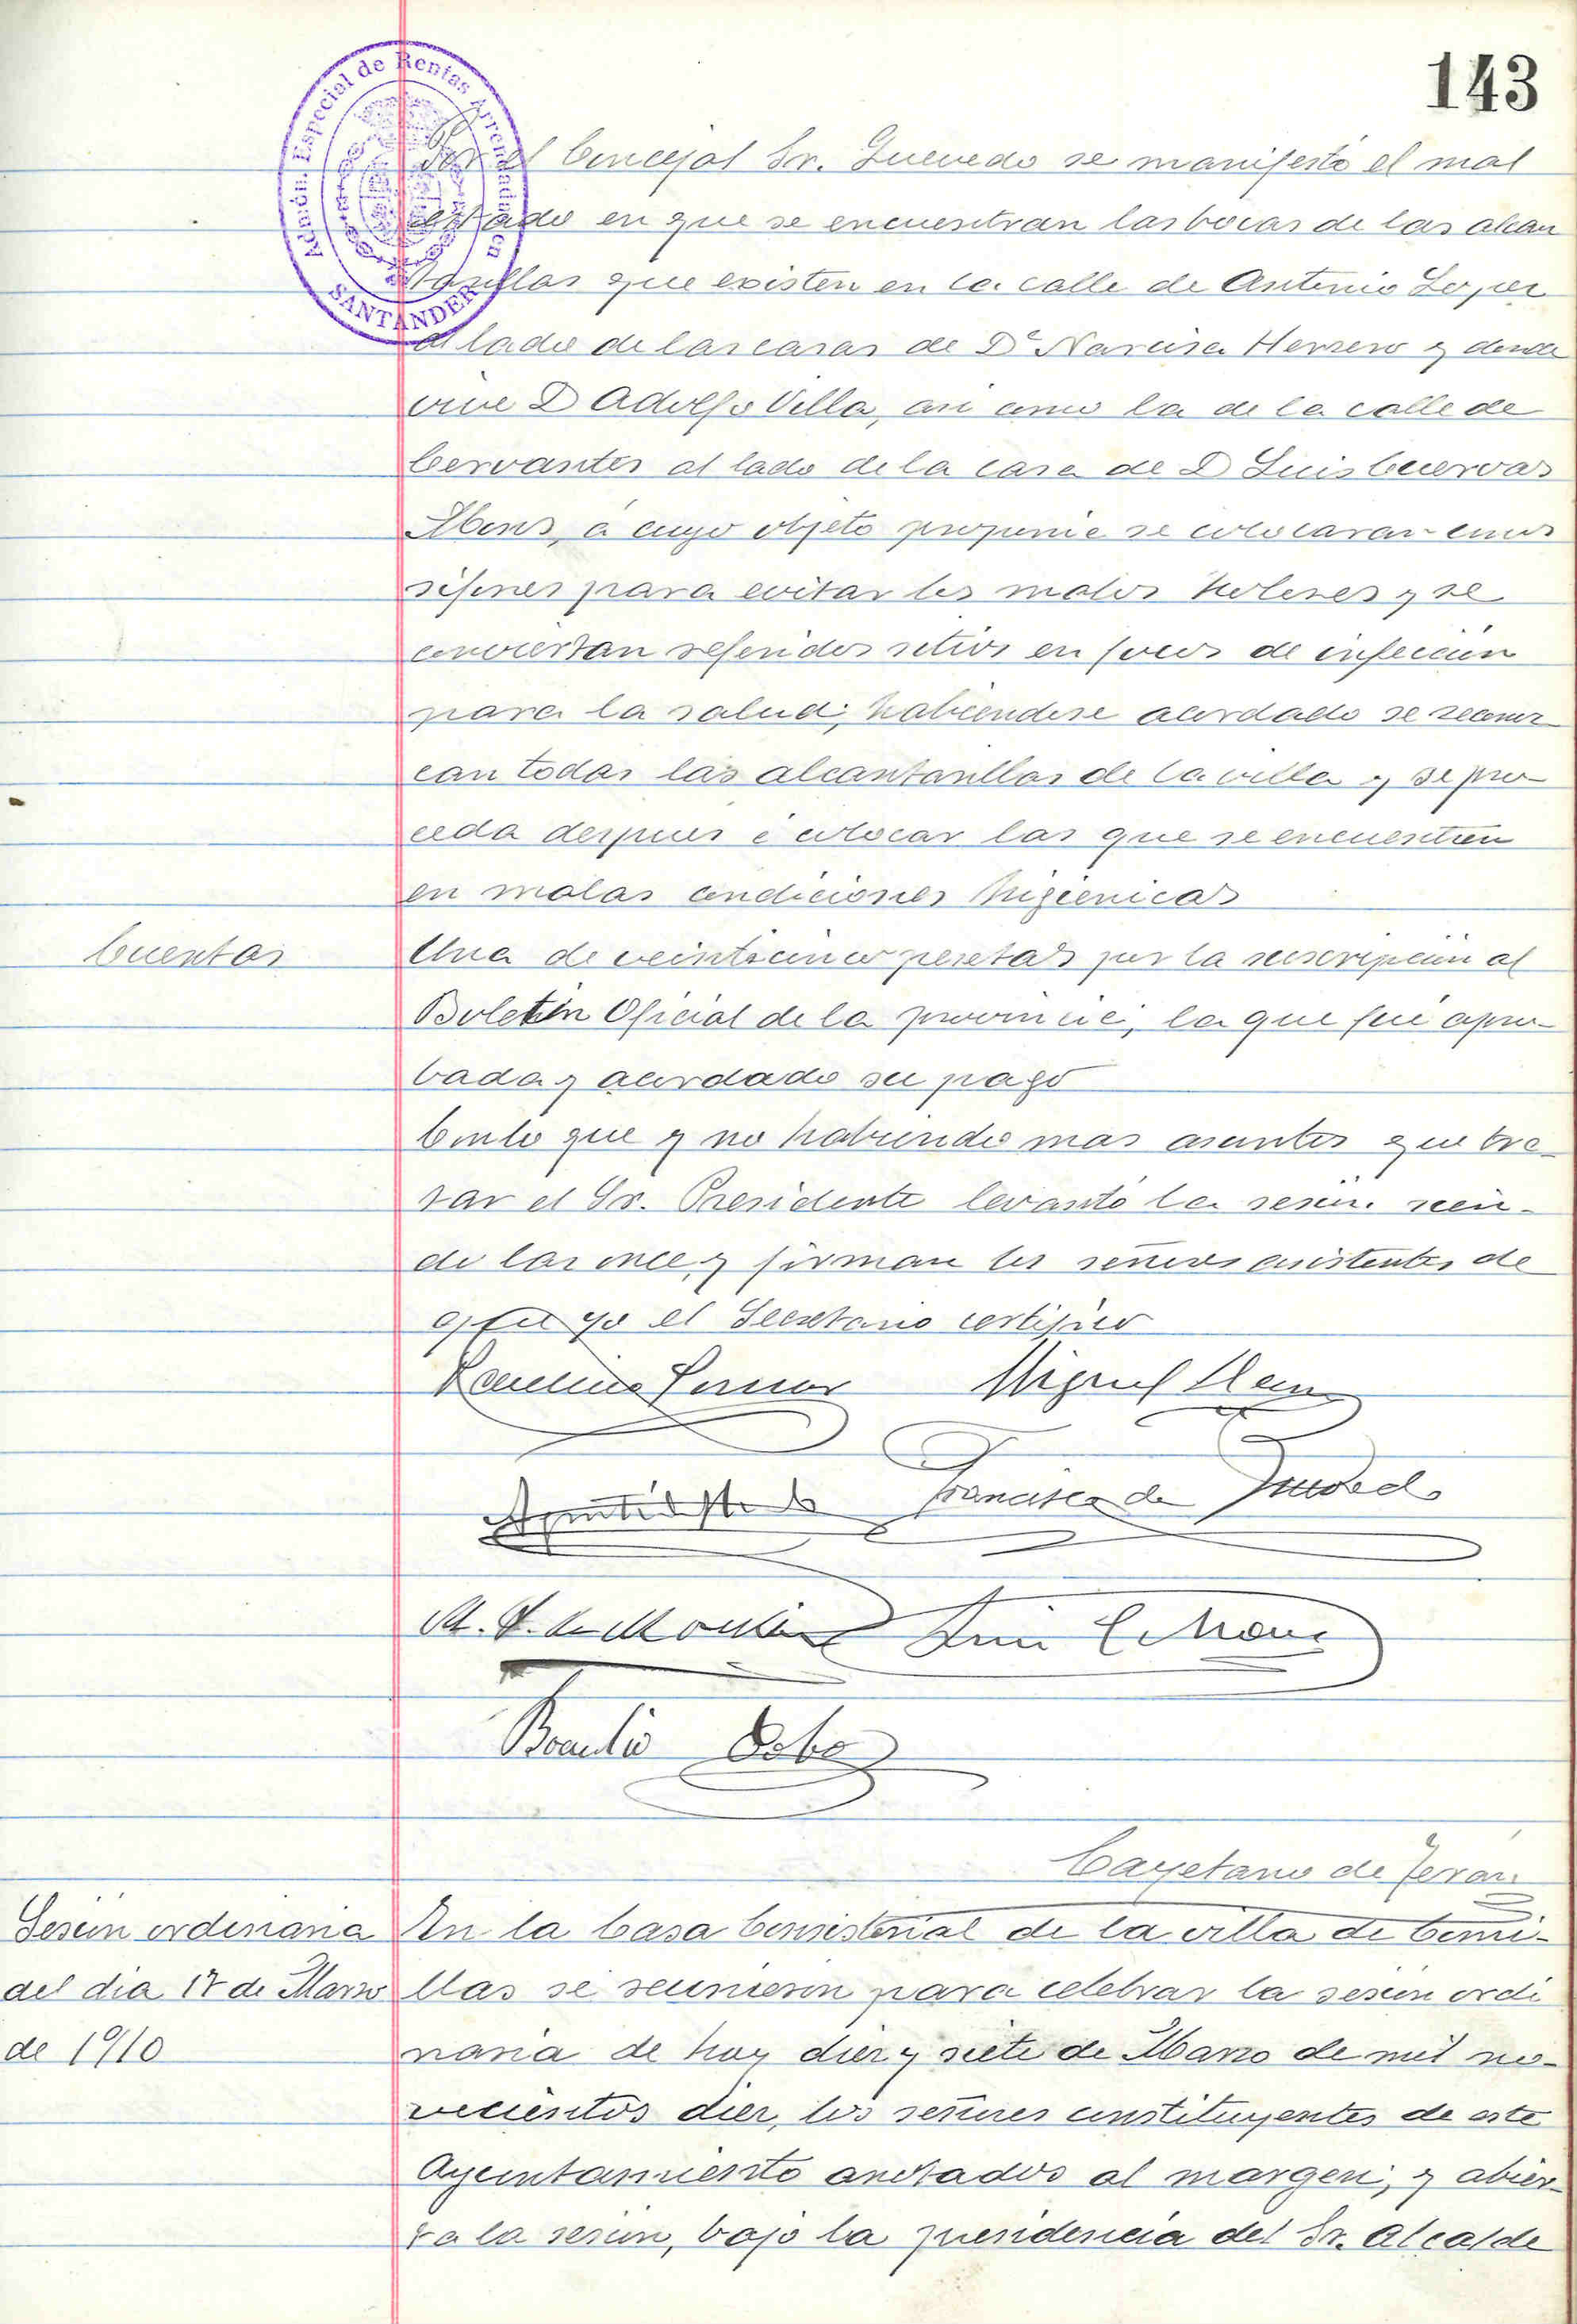 143
Admón. Especial de Rentas Arrendadas en
SANTANDER
Por el Concejal Sr. Quevedo se manifestó el mal
estado en que se encuentran las bocas de las alcan
tarillas que existen en la calle de Antonio Lopez
al lado de las casas de Dª Narcisa Herrero y donde
vive D Adolfo Villa, asi como la de la calle de
Cervantes al lado de la casa de D Luis Cuervas
Mons, á cuyo objeto proponia se colocaran unos
sifones para evitar los malos holores y se
conviertan referidos sitios en focos de infeccion
para la salud; habiendose acordado se reconoz
can todas las alcantarillas de la villa y se pro-
ceda despues á colocar las que se encuentren
en malas condiciones higienicas
Cuentas
Una de veinticinco pesetas por la suscripcion al
Boletin Oficial de la provincia, la que fué apro-
bada y acordado su pago
Con lo que y no habiendo mas asuntos que tra-
tar el Sr. Presidente levantó la sesión sien-
do las once, y firman los señores asistentes de
que yo el Secretario certifico
Miguel
Francisco de Quevedo
Luis C Mons
Braulio Cobo
Cayetano de Terán
Sesión ordinaria
del dia 17 de Marzo
de 1910
En la Casa Consistorial de la villa de Comi-
llas se reunieron para celebrar la sesión ordi
naria de hoy diez y siete de Marzo de mil no-
vecientos diez, los señores constituyentes de este
Ayuntamiento anotados al margen, y abier-
ta la sesión, bajo la presidencia del Sr. Alcalde